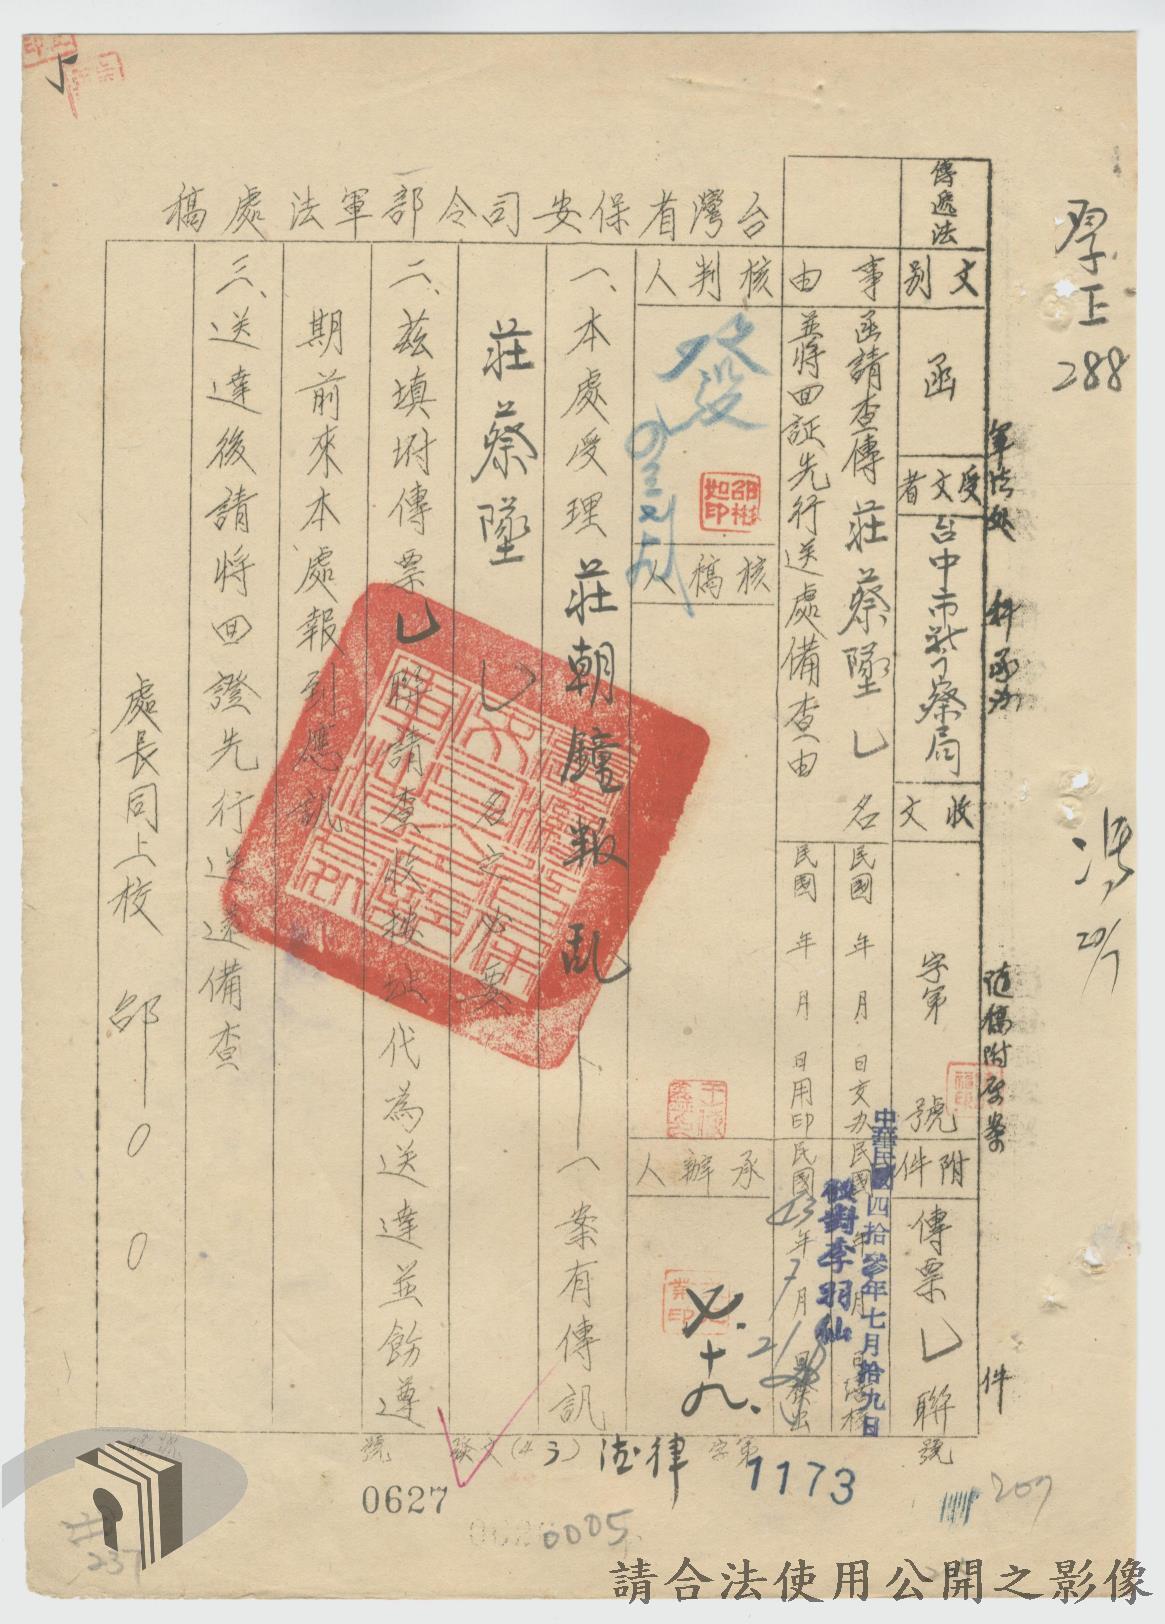 台灣省保安司令部軍法處稿
傳遞法
文別
函
受文者
台中市警察局
收文
字第
號
附件
傳票乚聯
號
事由
函請查傳莊蔡墜乚名
並將回証先行送處備查由
民國 年 月 日交办
民國 年 月 日用印
民國43年7月21日發出
核判人
發
核稿人
承辦人
七.十九.
一、本處受理莊朝鐘叛乱一案有傳訊
莊蔡墜乚名之必要
二、茲填附傳票乚聯請查收按址代為送達並飭遵
期前來本處報到應訊
三、送達後請將回證先行送還備查
處長同上校 邵○○
發文(43)法律字第1173號
中華民國四拾參年七月拾九日
校對李羽仙
軍法处 科承办 随稿附原案 件
288
20/7
0627
0005
207
237
請合法使用公開之影像